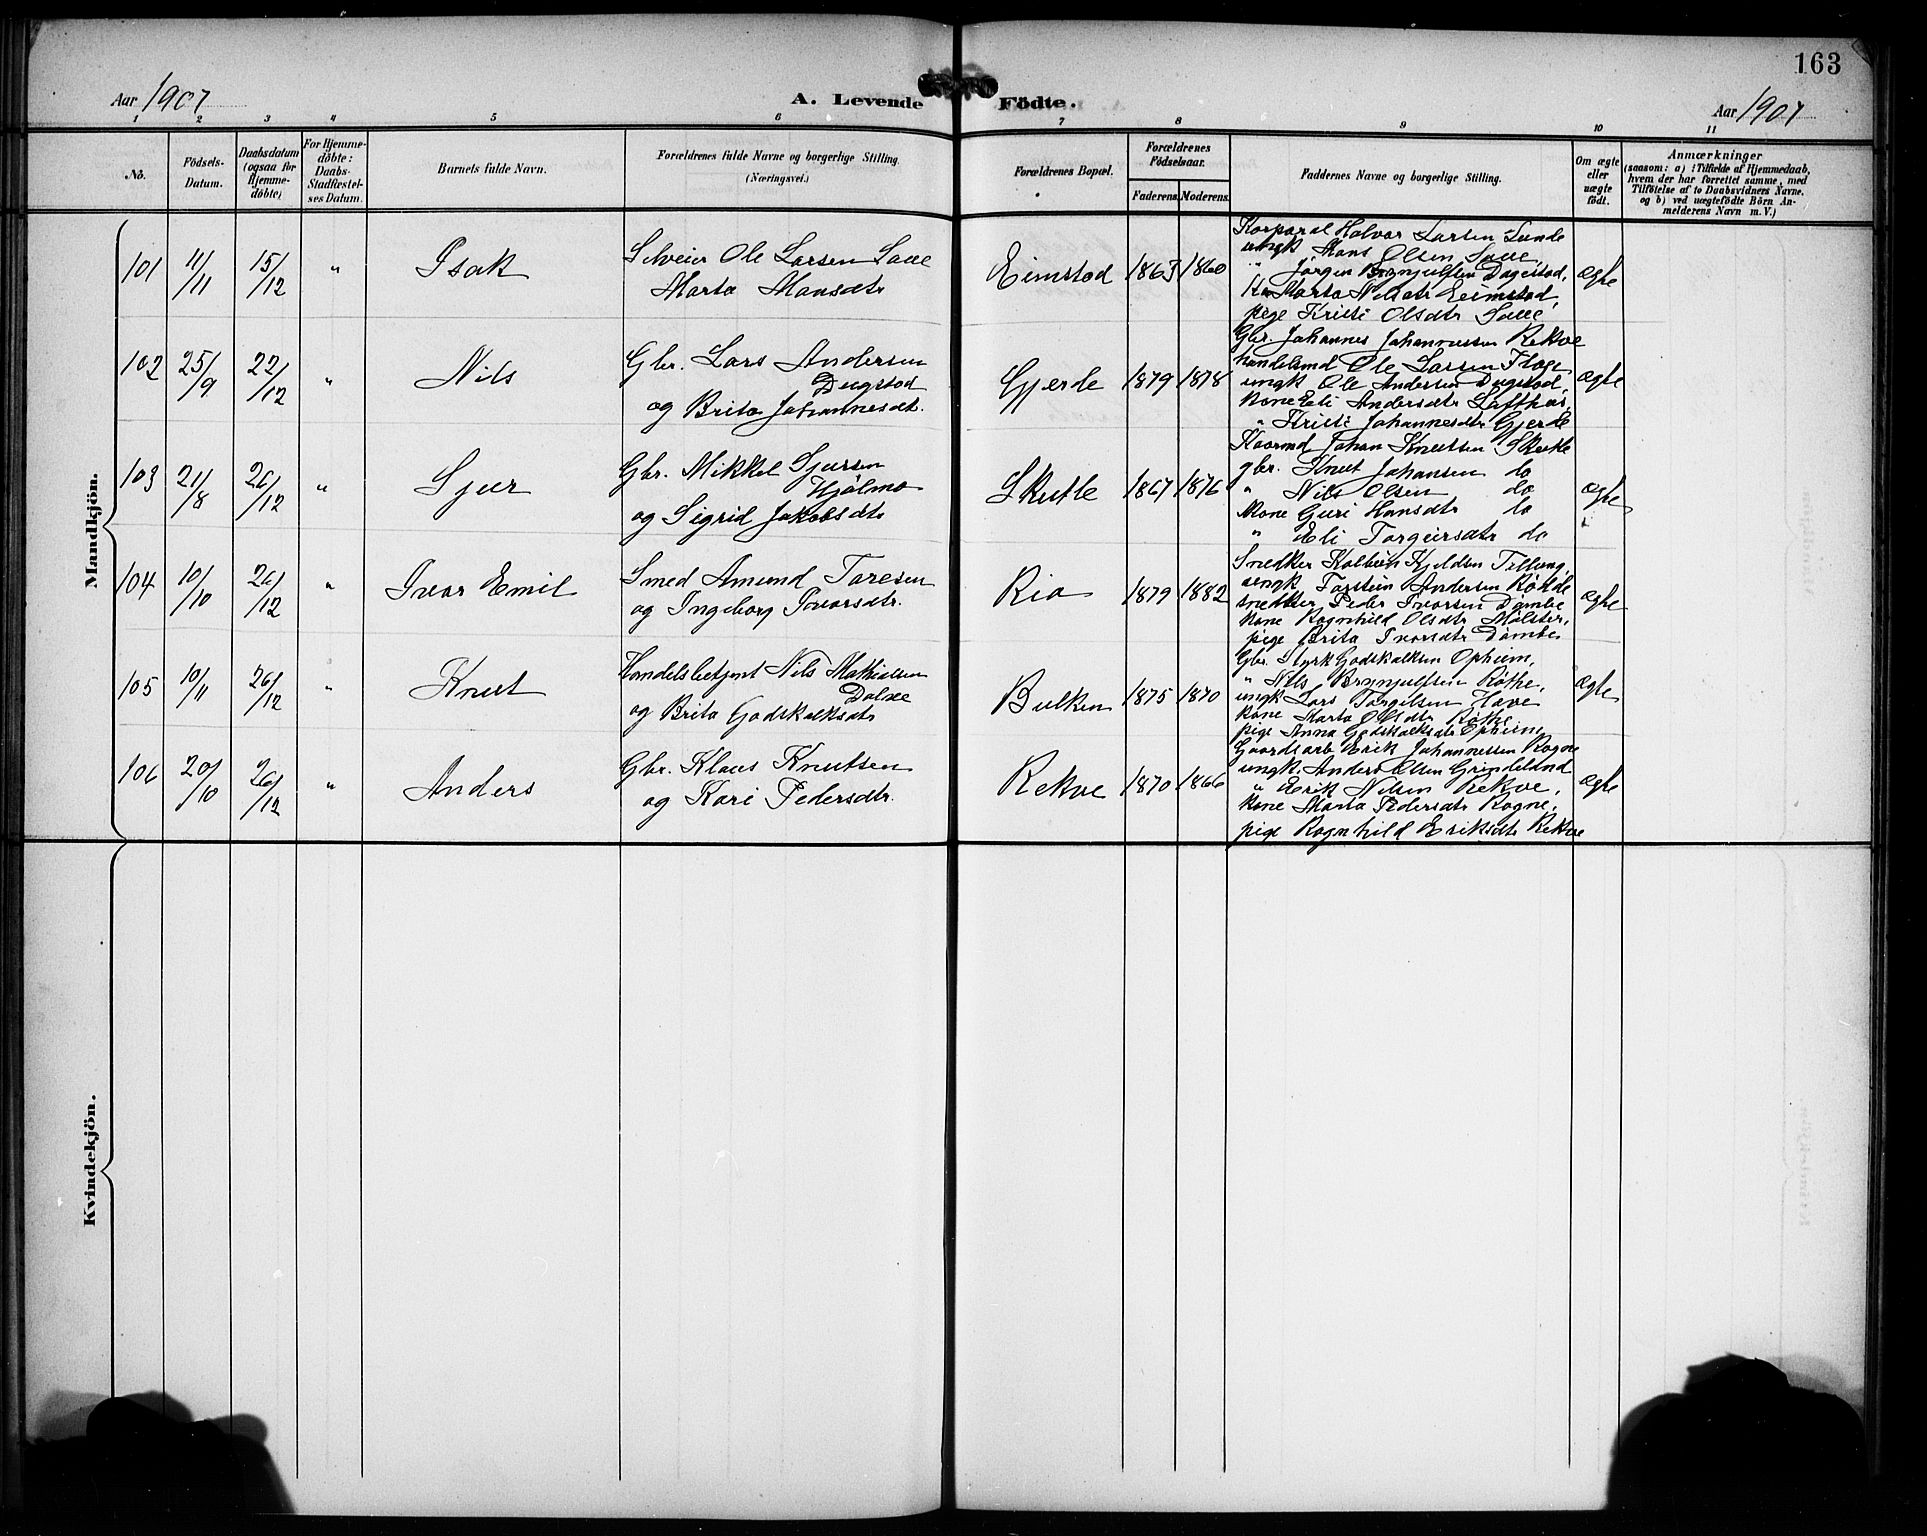 163
Aar 1907
A. Levende Födte.
Aar 1907
1 2 3 4 5 6 7 8 9 10 11
No.
Födsels-
Datum.
Daabsdatum
(ogsaa for
Hjemme-
döbte)
For Hjemme-
döbte:
Daabs-
Stadfæstel-
ses Datum.
Barnets fulde Navn.
Forældrenes fulde Navne og borgerlige Stilling.
(Næringsvei.)
Forældrenes Bopæl.
Forældrenes
Födselsaar.
Faderens. Moderens.
Faddernes Navne og borgerlige Stilling.
Om ægte
eller
uægte
födt.
Anmærkninger
(saasom: a) i Tilfælde af Hjemmedaab,
hvem der har forrettet samme, med
Tilföielse af to Daabsvidners Navne,
og b) ved uægtefödte Börn An-
melderens Navn m. V.)
Mandkjön.
101 11/11 15/12 " Isak
Selveier Ole Larsen Saue
Marta Monsdtr
Eimstad 1863 1860
Korporal Halvor Larsen Lunde
ungk. Mons Olsen Saue,
" Jörgen Brynjulfsen Dagestad,
Marta Nilsdtr Eimstad,
pige Kristi Olsdtr Saue
ægte
102 25/9 22/12 " Nils
Gbr. Lars Andersen
Dugstad
og Brita Johannesdt.
Gjerde 1879 1878
Gbr. Johannes Johannessen Rekve
handelsmd Ole Larsen Flage
ungk Ole Andersen Dugstad,
kone Eli Andersdtr Lofthus,
" Kristi Johannesdtr Gjerde
ægte
103 21/8 26/12 " Sjur
Gbr. Mikkel Sjursen
Hjölmo
og Sigrid Jakobsdtr
Skutle 1867 1876
Kaarmd Johan Knutsen Skutle
gbr. Knut Johansen do
" Nils Olsen do
kone Guri Hansdtr do
" Eli Torgeirsdtr do
ægte
104 10/10 26/12 " Ivar Emil
Smed Amund Taresen
og Ingeborg Ivarsdtr.
Rio 1879 1882
Snedker Kolbein Kjeldsen Tillung,
ungk Torstein Andersen Rökne
snedker Peder Ivarsen Dömbe
kone Ragnhild Olsdtr Mölster,
pige Brita Ivarsdtr Dömbe
ægte
105 10/11 26/12 " Knut
Handelsbetjent Nils Mathiassen
og Brita Godskalksdtr
Bulken 1875 1870
Gbr. Styrk Godskalksen Opheim,
" Nils Brynjulfsen Röthe,
ungk Lars Torgilsen Have
kone Marta Olsdtr Röthe
pige Anna Godskalksdtr Opheim,
ægte
106 20/10 26/12 " Anders
Gbr. Klaus Knutsen
og Kari Pedersdtr.
Rekve 1870 1866
Gaardsarb Erik Johannessen Rogne
ungk. Anders Olsen Grindeland
" Erik Nilsen Rekve,
kone Marta Pedersdtr Rogne,
pige Ragnhild Eriksdtr Rekve
ægte
Kvindekjön.